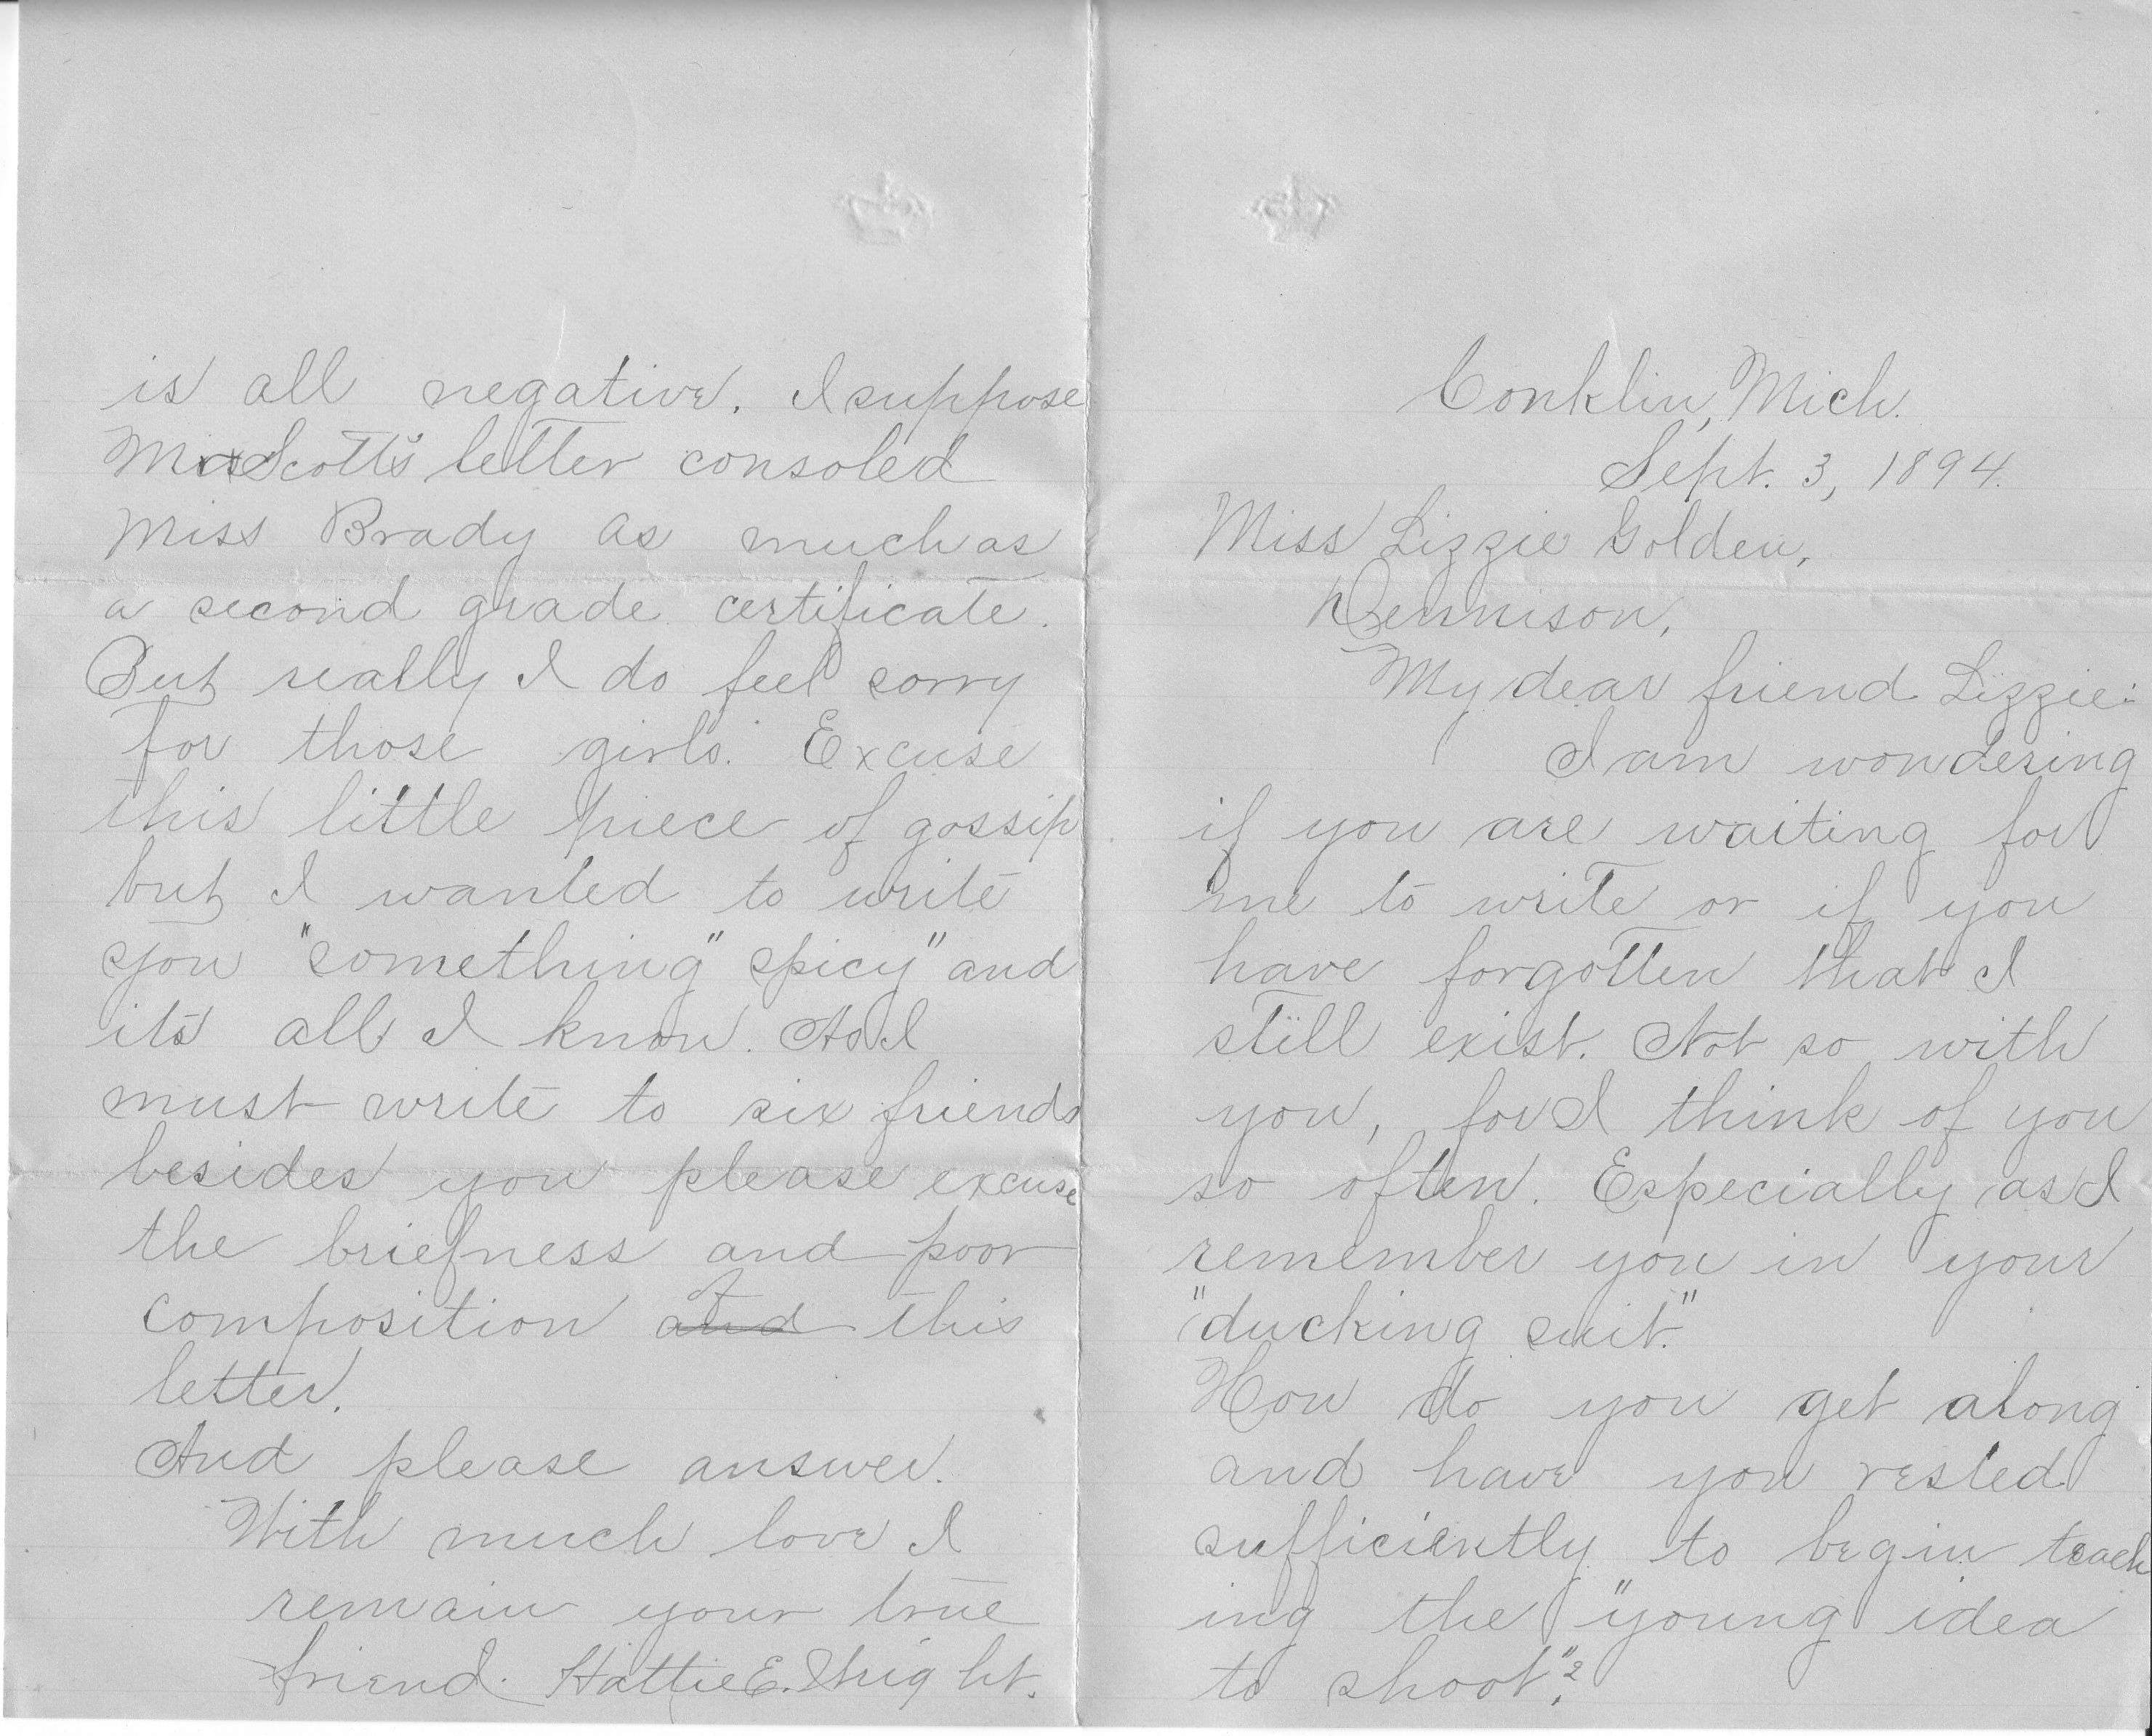 Conklin, Mich.
Sept. 3, 1894.
Miss Lizzie Golden,
Dennison,
My dear friend Lizzie:
I am wondering
if you are waiting for
me to write or if you
have forgotten that I
still exist. Not so with
you, for I think of you
so often. Especially as I
remember you in your
"ducking suit."
How do you get along
and have you rested
sufficiently to begin teach
ing the "young idea
to shoot"?
is all negative. I suppose
Scott's letter consoled
Miss Brady as much as
a second grade certificate.
But really I do feel sorry
for those girls. Excuse
this little piece of gossip
but I wanted to write
you "something" spicy" and
its all I know. As I
must write to six friends
besides you please excuse
the briefness and poor
composition of this
letter.
And please answer.
With much love I
remain your true
friend. Hattie E.